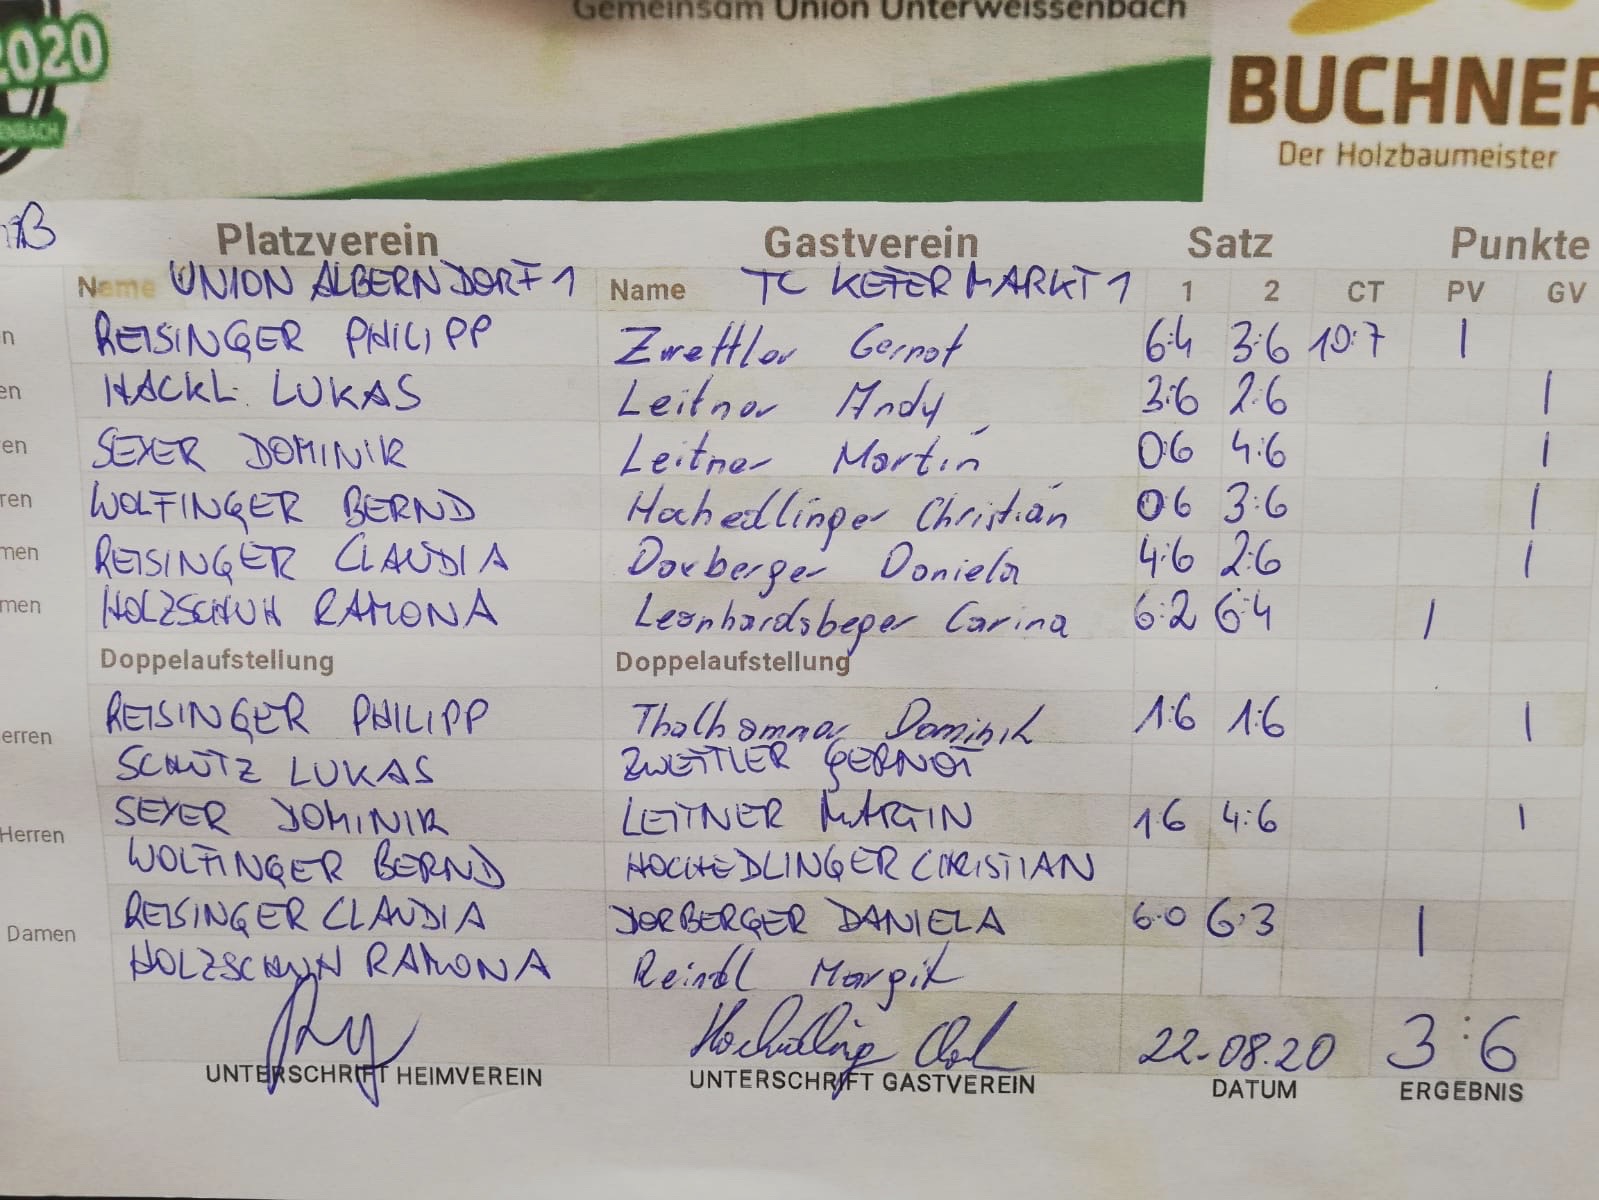 Gemeinsam Union Unterweissenbach
2020
ENBACH
BUCHNER
Der Holzbaumeister
B
Platzverein Gastverein Satz Punkte
Name UNION ALBERNDORF 1 Name TC KEFERMARKT 1 1 2 CT PV GV
n REISINGER PHILIPP Zwettler Gernot 6:4 3:6 10:7 1
en HACKL LUKAS Leitner Andy 3:6 2:6 1
en SEYER DOMINIK Leitner Martin 0:6 4:6 1
ren WOLFINGER BERND Hochedlinger Christian 0:6 3:6 1
men REISINGER CLAUDIA Dorberger Daniela 4:6 2:6 1
men HOLZSCHUH RAMONA Leonhardsbeger Carina 6:2 6:4 1
Doppelaufstellung Doppelaufstellung
REISINGER PHILIPP Thalhammer Dominik 1:6 1:6 1
erren
SCHÜTZ LUKAS ZWETTLER GERNOT
SEYER DOMINIK LEITNER MARTIN 1:6 4:6 1
Herren
WOLFINGER BERND HOCHEDLINGER CHRISTIAN
REISINGER CLAUDIA DORBERGER DANIELA 6:0 6:3 1
Damen
HOLZSCHUH RAMONA Reindl Margit
22.08.20 3:6
UNTERSCHRIFT HEIMVEREIN UNTERSCHRIFT GASTVEREIN DATUM ERGEBNIS